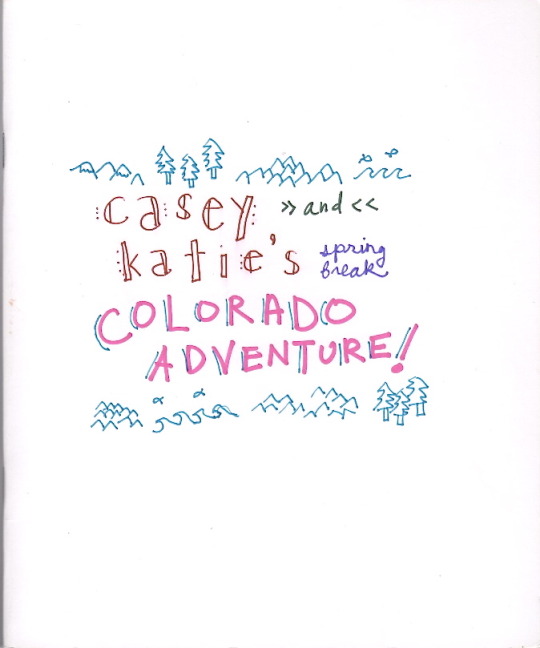 casey >> and <<
katie's spring break
COLORADO
ADVENTURE!